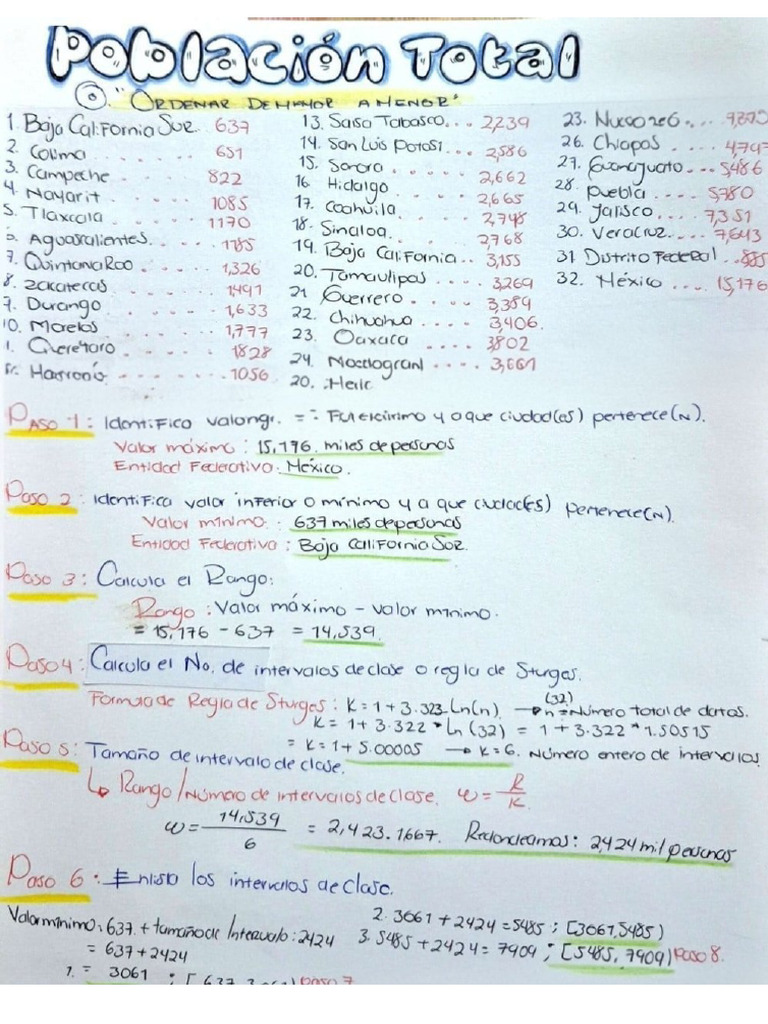 Población Total
"Ordenar de mayor a menor"
1. Baja California Sur. 637
2. Colima ....... 651
3. Campeche ..... 822
4. Nayarit ...... 1085
5. Tlaxcala ..... 1170
6. Aguascalientes. .... 1185
7. Quintana Roo .... 1,326
8. Zacatecas ..... 1491
9. Durango ..... 1,633
10. Morelos ..... 1,777
1. Querétaro ..... 1828
..... 1056
13. Tabasco... 2,239
14. San Luis Potosí ... 2,586
15. Sonora ..... 2,662
16. Hidalgo ..... 2,665
17. Coahuila ..... 2,748
18. Sinaloa ..... 2768
19. Baja California ... 3,155
20. Tamaulipas .... 3,269
21 Guerrero ..... 3,389
22. Chihuahua .... 3,406.
23. Oaxaca ..... 3802
24. .... 3,661
20.
23. ....
26. Chiapas ....
27. Guanajuato ... 5486
28. Puebla ..... 5,780
29. Jalisco ..... 7,351
30. Veracruz .... 7,643
31 Distrito Federal ..
32. México .... 15,176
Paso 1: Identifica y a que ciudad(es) pertenece(n).
Valor máximo: 15,176. miles de personas
Entidad Federativa: México.
Paso 2: Identifica valor inferior o mínimo y a que ciudad(es) pertenece(n).
Valor mínimo: 637 miles de personas
Entidad Federativa: Baja California Sur.
Paso 3: Calcula el Rango:
Rango: Valor máximo - valor mínimo.
= 15,176 - 637 = 14,539.
Paso 4: Calcula el No. de intervalos de clase o regla de Sturges.
Formula de Regla de Sturges: K = 1 + 3.323 Ln(n). → n = Número total de datos. (32)
K = 1 + 3.322 * ln (32) = 1 + 3.322 * 1.50515
= K = 1 + 5.00005 → K = 6. Número entero de intervalos
Paso 5: Tamaño de intervalo de clase.
↳ Rango / Número de intervalos de clase. w = R/K.
w = 14,539/6 = 2,423.1667. Redondeamos: 2,424 mil personas
Paso 6: Enlista los intervalos de clase.
Valor mínimo: 637. + tamaño de Intervalo: 2424
= 637 + 2424
1. = 3061 ; [637, Paso 7
2. 3061 + 2424 = 5485 ; [3061, 5485)
3. 5485 + 2424 = 7909 ; [5485, 7909) Paso 8.